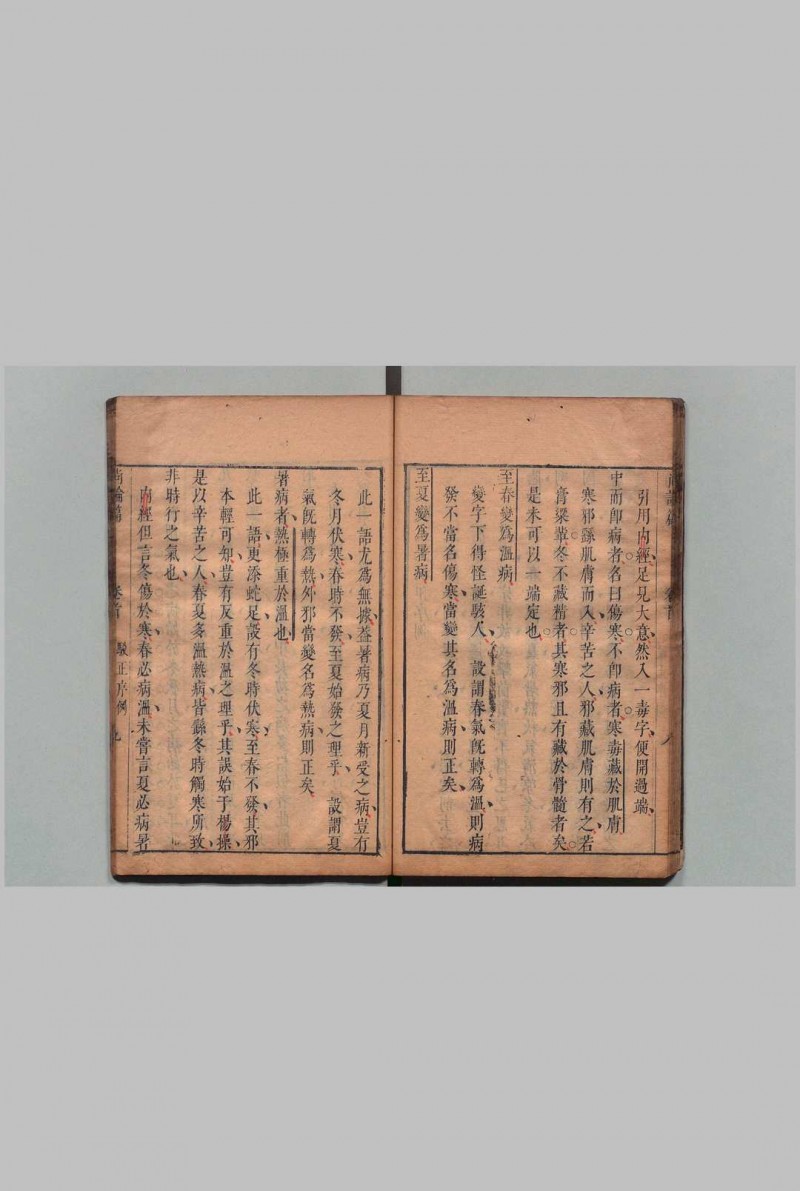 引用内經足見大意然入一毒字便開過端
中而即病者名曰傷寒不即病者寒毒藏於肌膚
寒邪繇肌膚而入辛苦之人邪藏肌膚則有之若
膏粱輩冬不藏精者其寒邪且有藏於骨髓者矣
是未可以一端定也
至春變爲溫病
變字下得怪誕駭人設謂春氣旣轉爲溫則病
發不當名傷寒當變其名爲溫病則正矣
至夏變爲暑病
此一語尤爲無據葢暑病乃夏月新受之病豈有
冬月伏寒春時不發至夏始發之理乎設謂夏
氣旣轉爲熱外邪當變名爲熱病則正矣
暑病者熱極重於溫也
此一語更添蛇足設有冬時伏寒至春不發其邪
本輕可知豈有反重於溫之理乎其誤始于楊操
是以辛苦之人春夏多溫熱病皆繇冬時觸寒所致
非時行之氣也
内經但言冬傷於寒春必病溫未嘗言夏必病暑
尚論篇 卷首 駁正序例 九